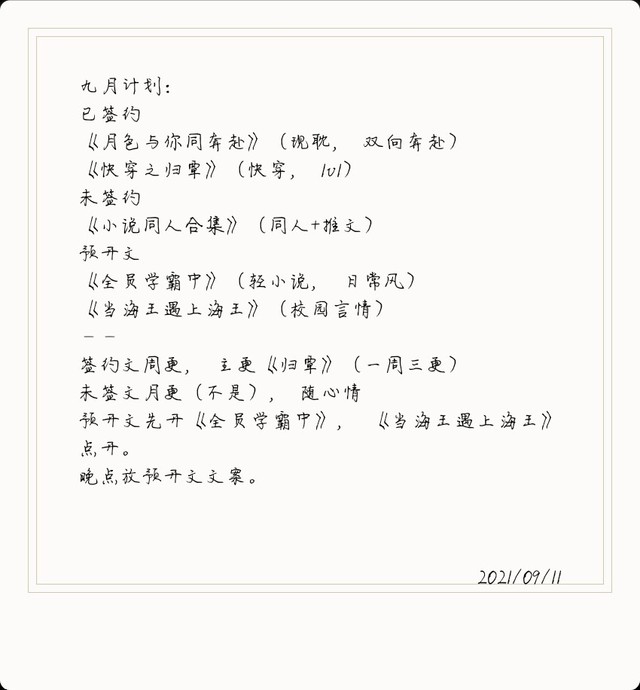 九月计划：
已签约
《月色与你同奔赴》（现耽， 双向奔赴）
《快穿之归覃》（快穿， 1v1）
未签约
《小说同人合集》（同人+推文）
预开文
《全员学霸中》（轻小说， 日常风）
《当海王遇上海王》（校园言情）
— —
签约文周更， 主更《归覃》（一周三更）
未签文月更（不是）， 随心情
预开文先开《全员学霸中》， 《当海王遇上海王》
点开。
晚点放预开文文案。
2021/09/11